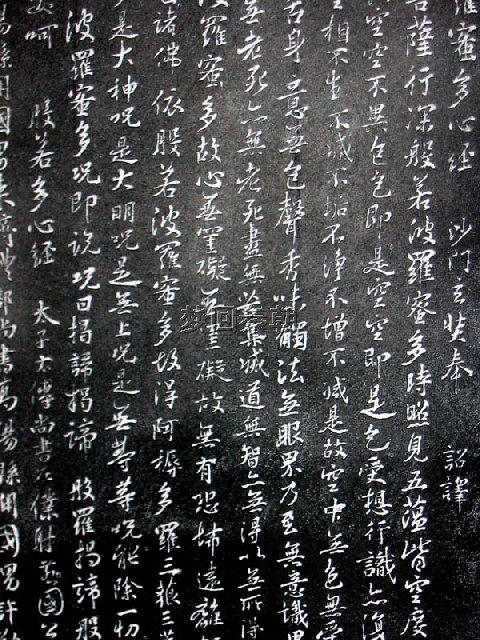 羅蜜多心經 沙門玄奘奉 詔譯
菩薩行深般若波羅蜜多時照見五蘊皆空度
空空不異色色即是空空即是色受想行識亦復
相不生不滅不垢不淨不增不減是故空中無色無受
舌身意無色聲香味觸法無眼界乃至無意識界
無老死亦無老死盡無苦集滅道無智亦無得以無所得
波羅蜜多故心無罣礙無罣礙故無有恐怖遠離
諸佛依般若波羅蜜多故得阿耨多羅三藐三
是大神呪是大明呪是無上呪是無等等呪能除一切
波羅蜜多呪即說呪曰揭諦揭諦 般羅揭諦般
莎呵 般若多心經 太子太傅尚書左僕射燕國公
縣開國男來濟 禮部尚書高陽縣開國男許敬
梦回